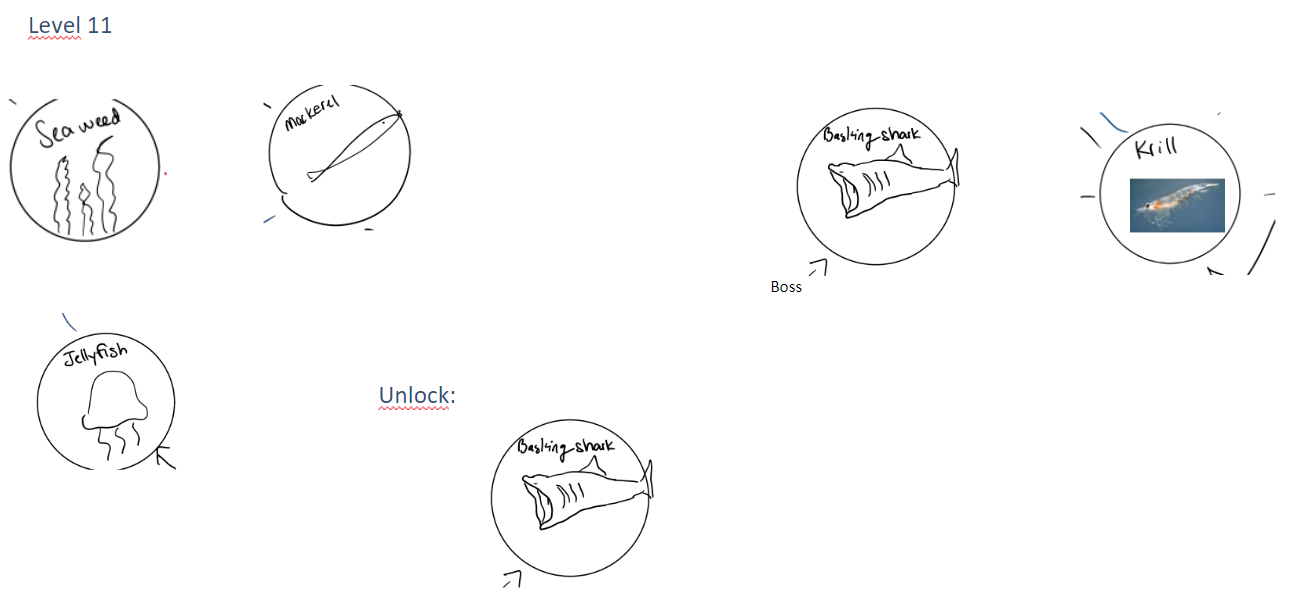 Level 11
Seaweed
Mackerel
Basking shark
Krill
Boss
Jellyfish
Unlock:
Basking shark